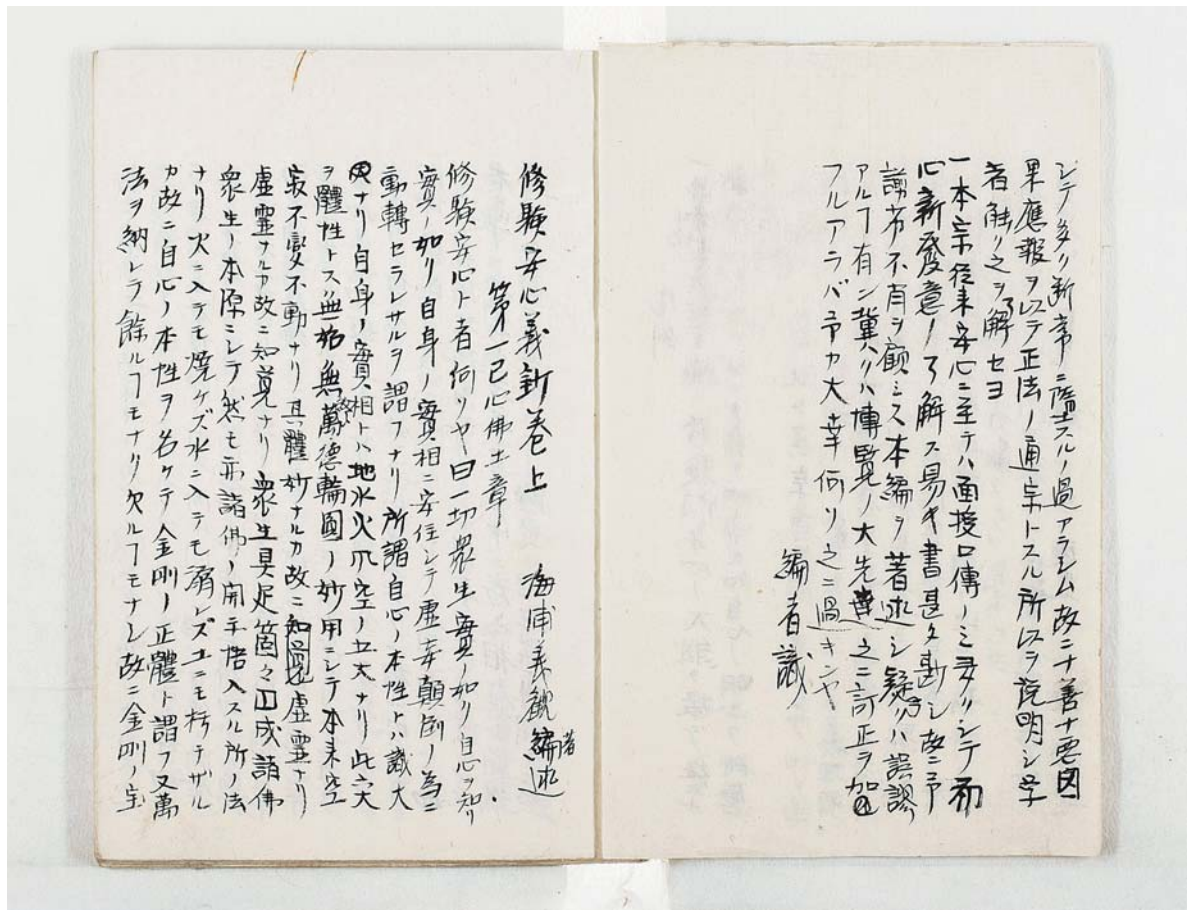 シテ多ク断常ニ墮スルノ過アラシム故ニ十善十悪因
果應報ヲ以テ正法ノ通宗トスル所以ヲ説明シ学
者触リ之ヲ了解セヨ
一本宗従来安心ニ至テハ面授口傳ノミ多クシテ初
心新發意ノ了解ス易キ書甚タ尠シ故ニ予
謭劣不肖ヲ顧ミス本編ヲ著述シ疑クハ誤謬
アルヿ有ン冀クハ博覧ノ大先達之ニ訂正ヲ加
フルアラバ予カ大幸何ソ之ニ過キンヤ
編者識
修験安心義鈔巻上
第一己心佛土章 海浦義観編述
著
修験安心ト者何ソヤ曰一切衆生實ノ如ク自心ヲ知リ
實ノ如ク自身ノ實相ニ安住シテ虚妄顛倒ノ為ニ
動轉セラレサルヲ謂フナリ所謂自心ノ本性トハ識大
ナリ自身ノ實相トハ地水火風空ノ五大ナリ此六大
ヲ體性トス無始無終萬德輪圓ノ妙用ニシテ本来空
寂不変不動ナリ其體妙ナルカ故ニ知覚虚靈ナリ
虚靈ナルカ故ニ知覚ナリ衆生具足箇々円成諸佛
衆生ノ本源ニシテ然モ亦諸佛ノ開示悟入スル所ノ法
ナリ火ニ入テモ焼ケズ水ニ入テモ溺レズ土ニモ朽テザル
カ故ニ自心ノ本性ヲ名ケテ金剛ノ正體ト謂フ又萬
法ヲ納レテ餘ルヿモナク欠ルヿモナシ故ニ金剛ノ宝